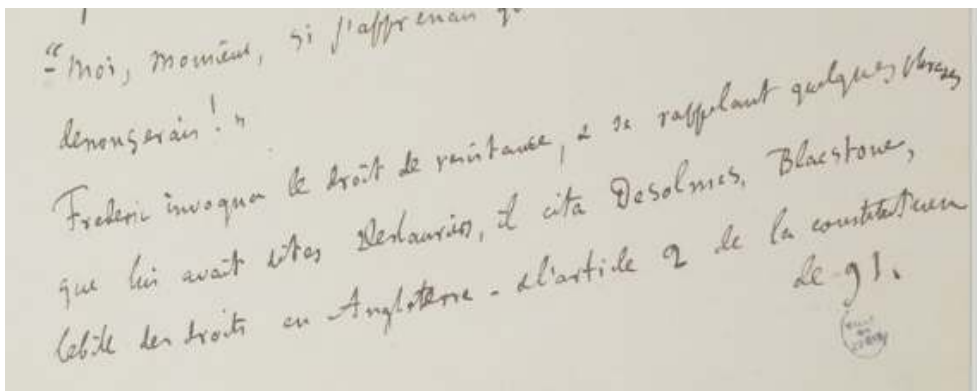 "Moi, Monsieur, si j'apprenais
denonçerais ! »
Frederic invoqua le droit de resistance, & se rappelant quelques phrases
que lui avait dites Deslauriers, il cita Desolmes, Blacstone,
le bill des droits en Angleterre - & l'article 2 de la constitution
de 91.